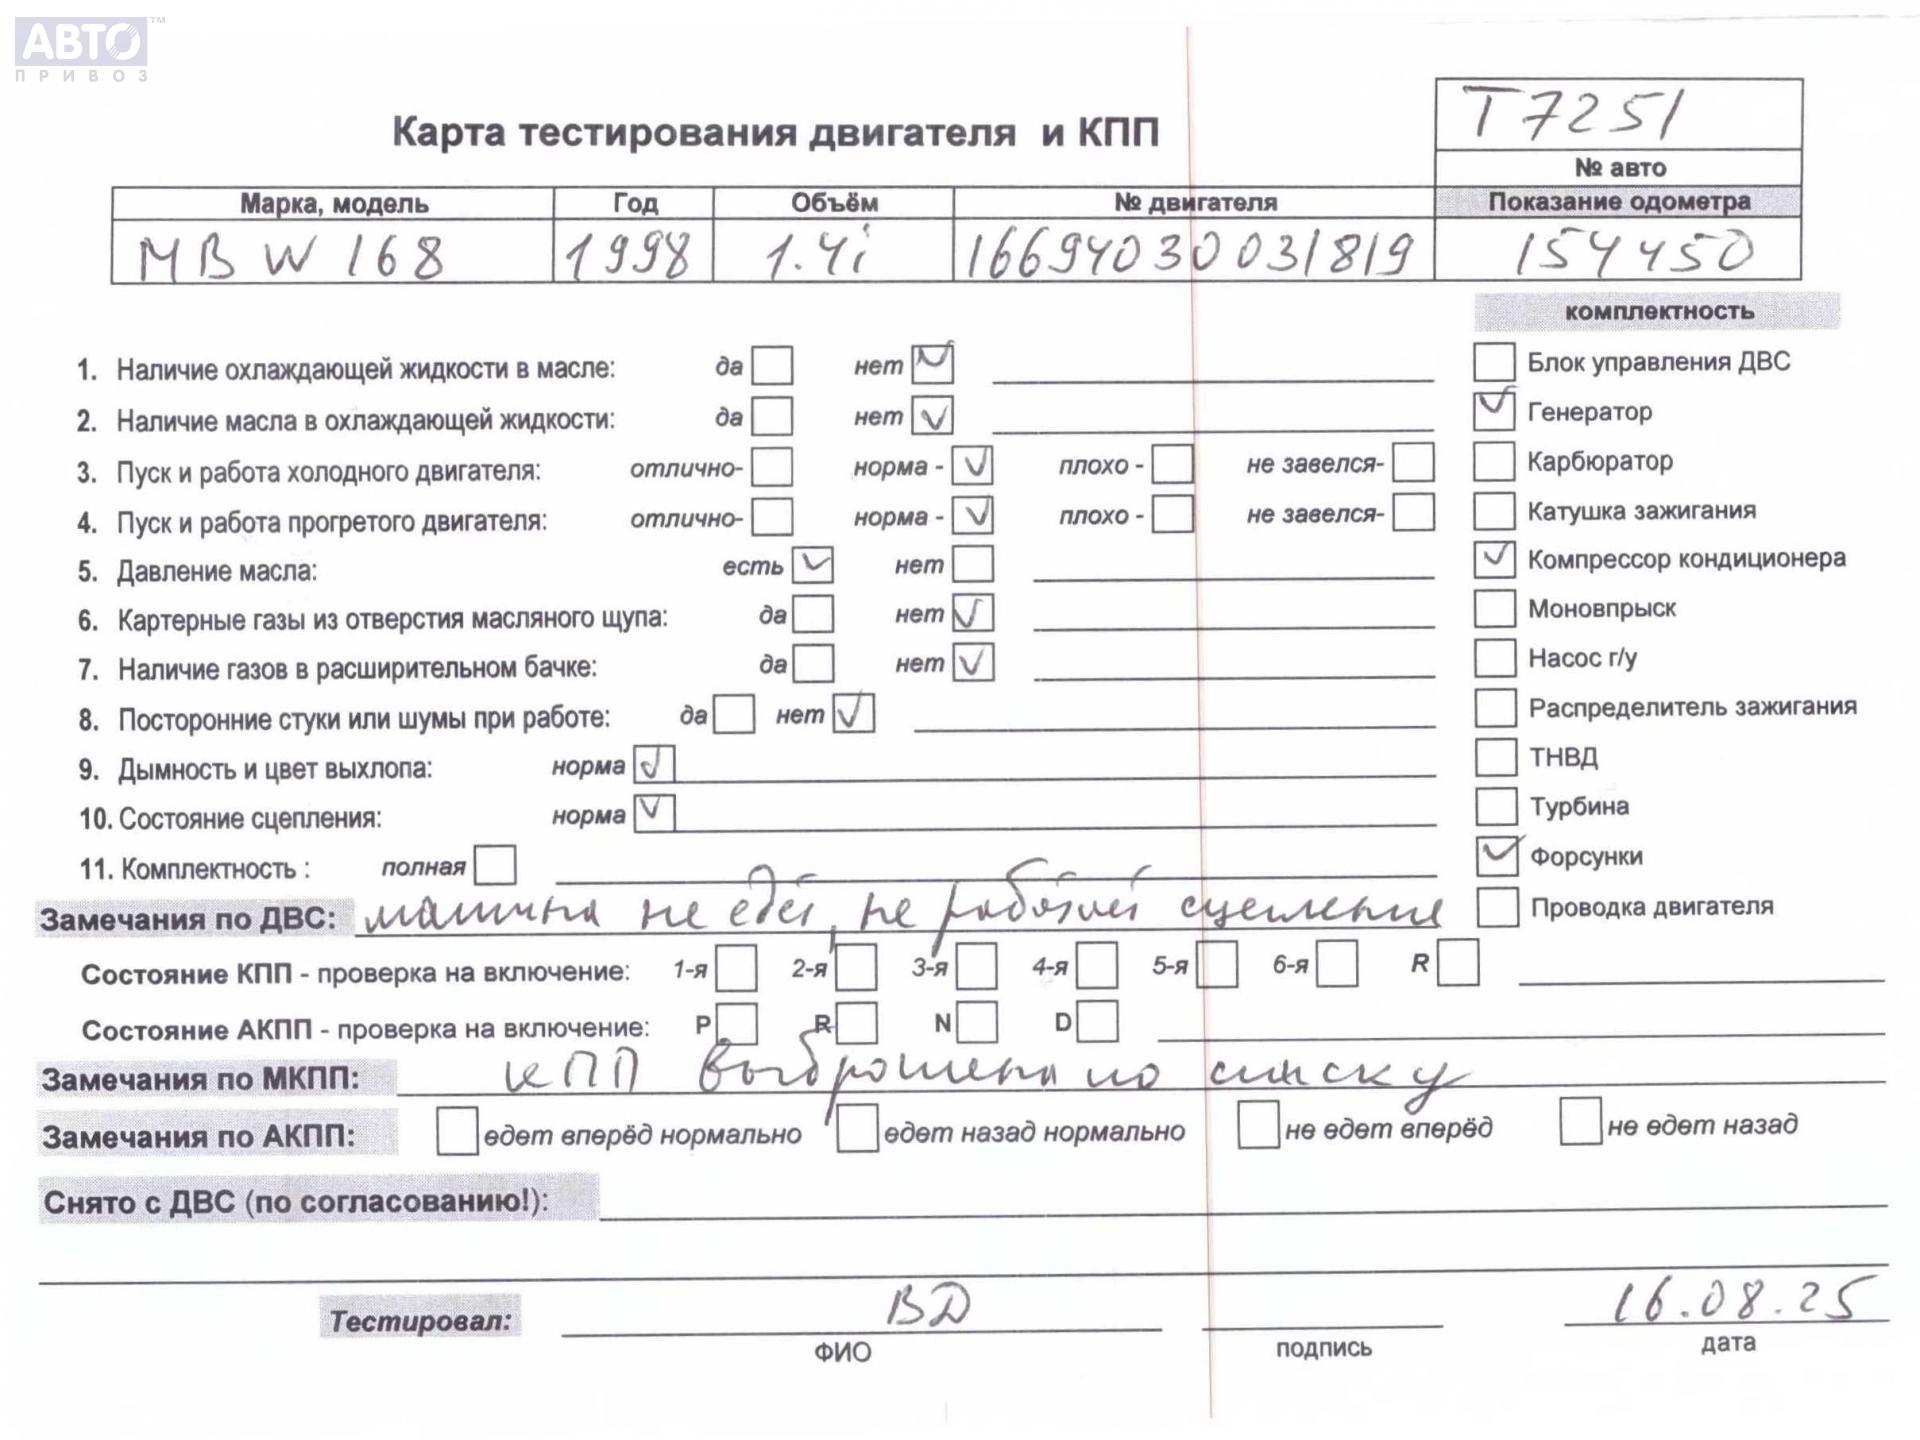 АВТО™
ПРИВОЗ
Т7251
Карта тестирования двигателя и КПП
№ авто
Марка, модель Год Объём № двигателя Показание одометра
MB W 168 1998 1.4i 16694030031819 154450
комплектность
1. Наличие охлаждающей жидкости в масле: да нет Блок управления ДВС
2. Наличие масла в охлаждающей жидкости: да нет Генератор
3. Пуск и работа холодного двигателя: отлично- норма - плохо - не завелся- Карбюратор
4. Пуск и работа прогретого двигателя: отлично- норма - плохо - не завелся- Катушка зажигания
5. Давление масла: есть нет Компрессор кондиционера
6. Картерные газы из отверстия масляного щупа: да нет Моновпрыск
7. Наличие газов в расширительном бачке: да нет Насос г/у
8. Посторонние стуки или шумы при работе: да нет Распределитель зажигания
9. Дымность и цвет выхлопа: норма ТНВД
10. Состояние сцепления: норма Турбина
11. Комплектность : полная Форсунки
Замечания по ДВС: машина не едет, не работает сцепление Проводка двигателя
Состояние КПП - проверка на включение: 1-я 2-я 3-я 4-я 5-я 6-я R
Состояние АКПП - проверка на включение: P R N D
Замечания по МКПП: КПП выброшена по списку
Замечания по АКПП: едет вперёд нормально едет назад нормально не едет вперёд не едет назад
Снято с ДВС (по согласованию!):
Тестировал: ВД 16.08.25
ФИО подпись дата